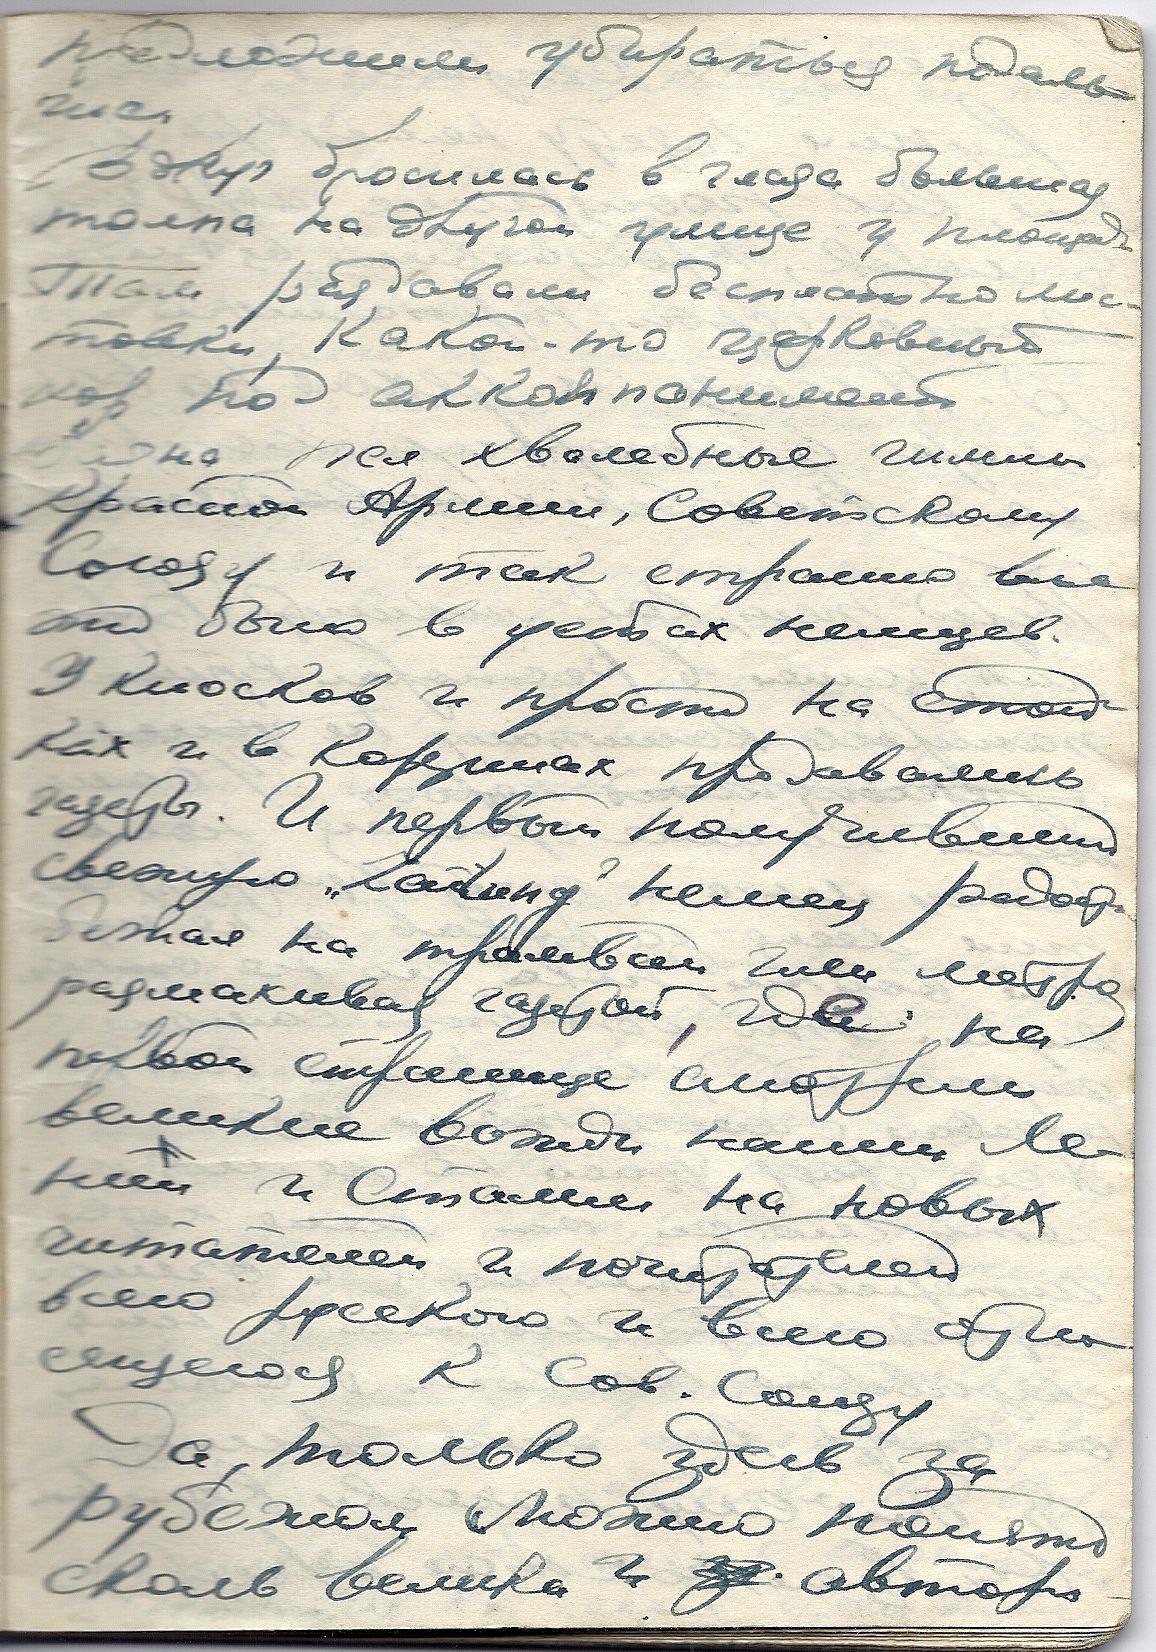 предложили убираться подаль-
ше.
Вдруг бросилась в глаза большая
толпа на другой улице у площади
Там раздавали бесплатно лис-
товки, какой-то церковный
хор под аккомпанимент
баяна пел хвалебные гимны
Красной Армии, Советскому
Союзу и так странно все
это было в устах немцев.
У киосков и просто на стой-
ках и в корзинах продавались
газеты. И первый получивший
свежую „ немец радостно
бежал на трамвай или метро
размахивая газетой, где на
первой странице смотрели
великие вожди наши Ле-
нин и Сталин на новых
читателей и почитателей
всего русского и всего отно-
сящегося к Сов. Союзу
Да, только здесь за
рубежом можно понять
сколь велика и автори